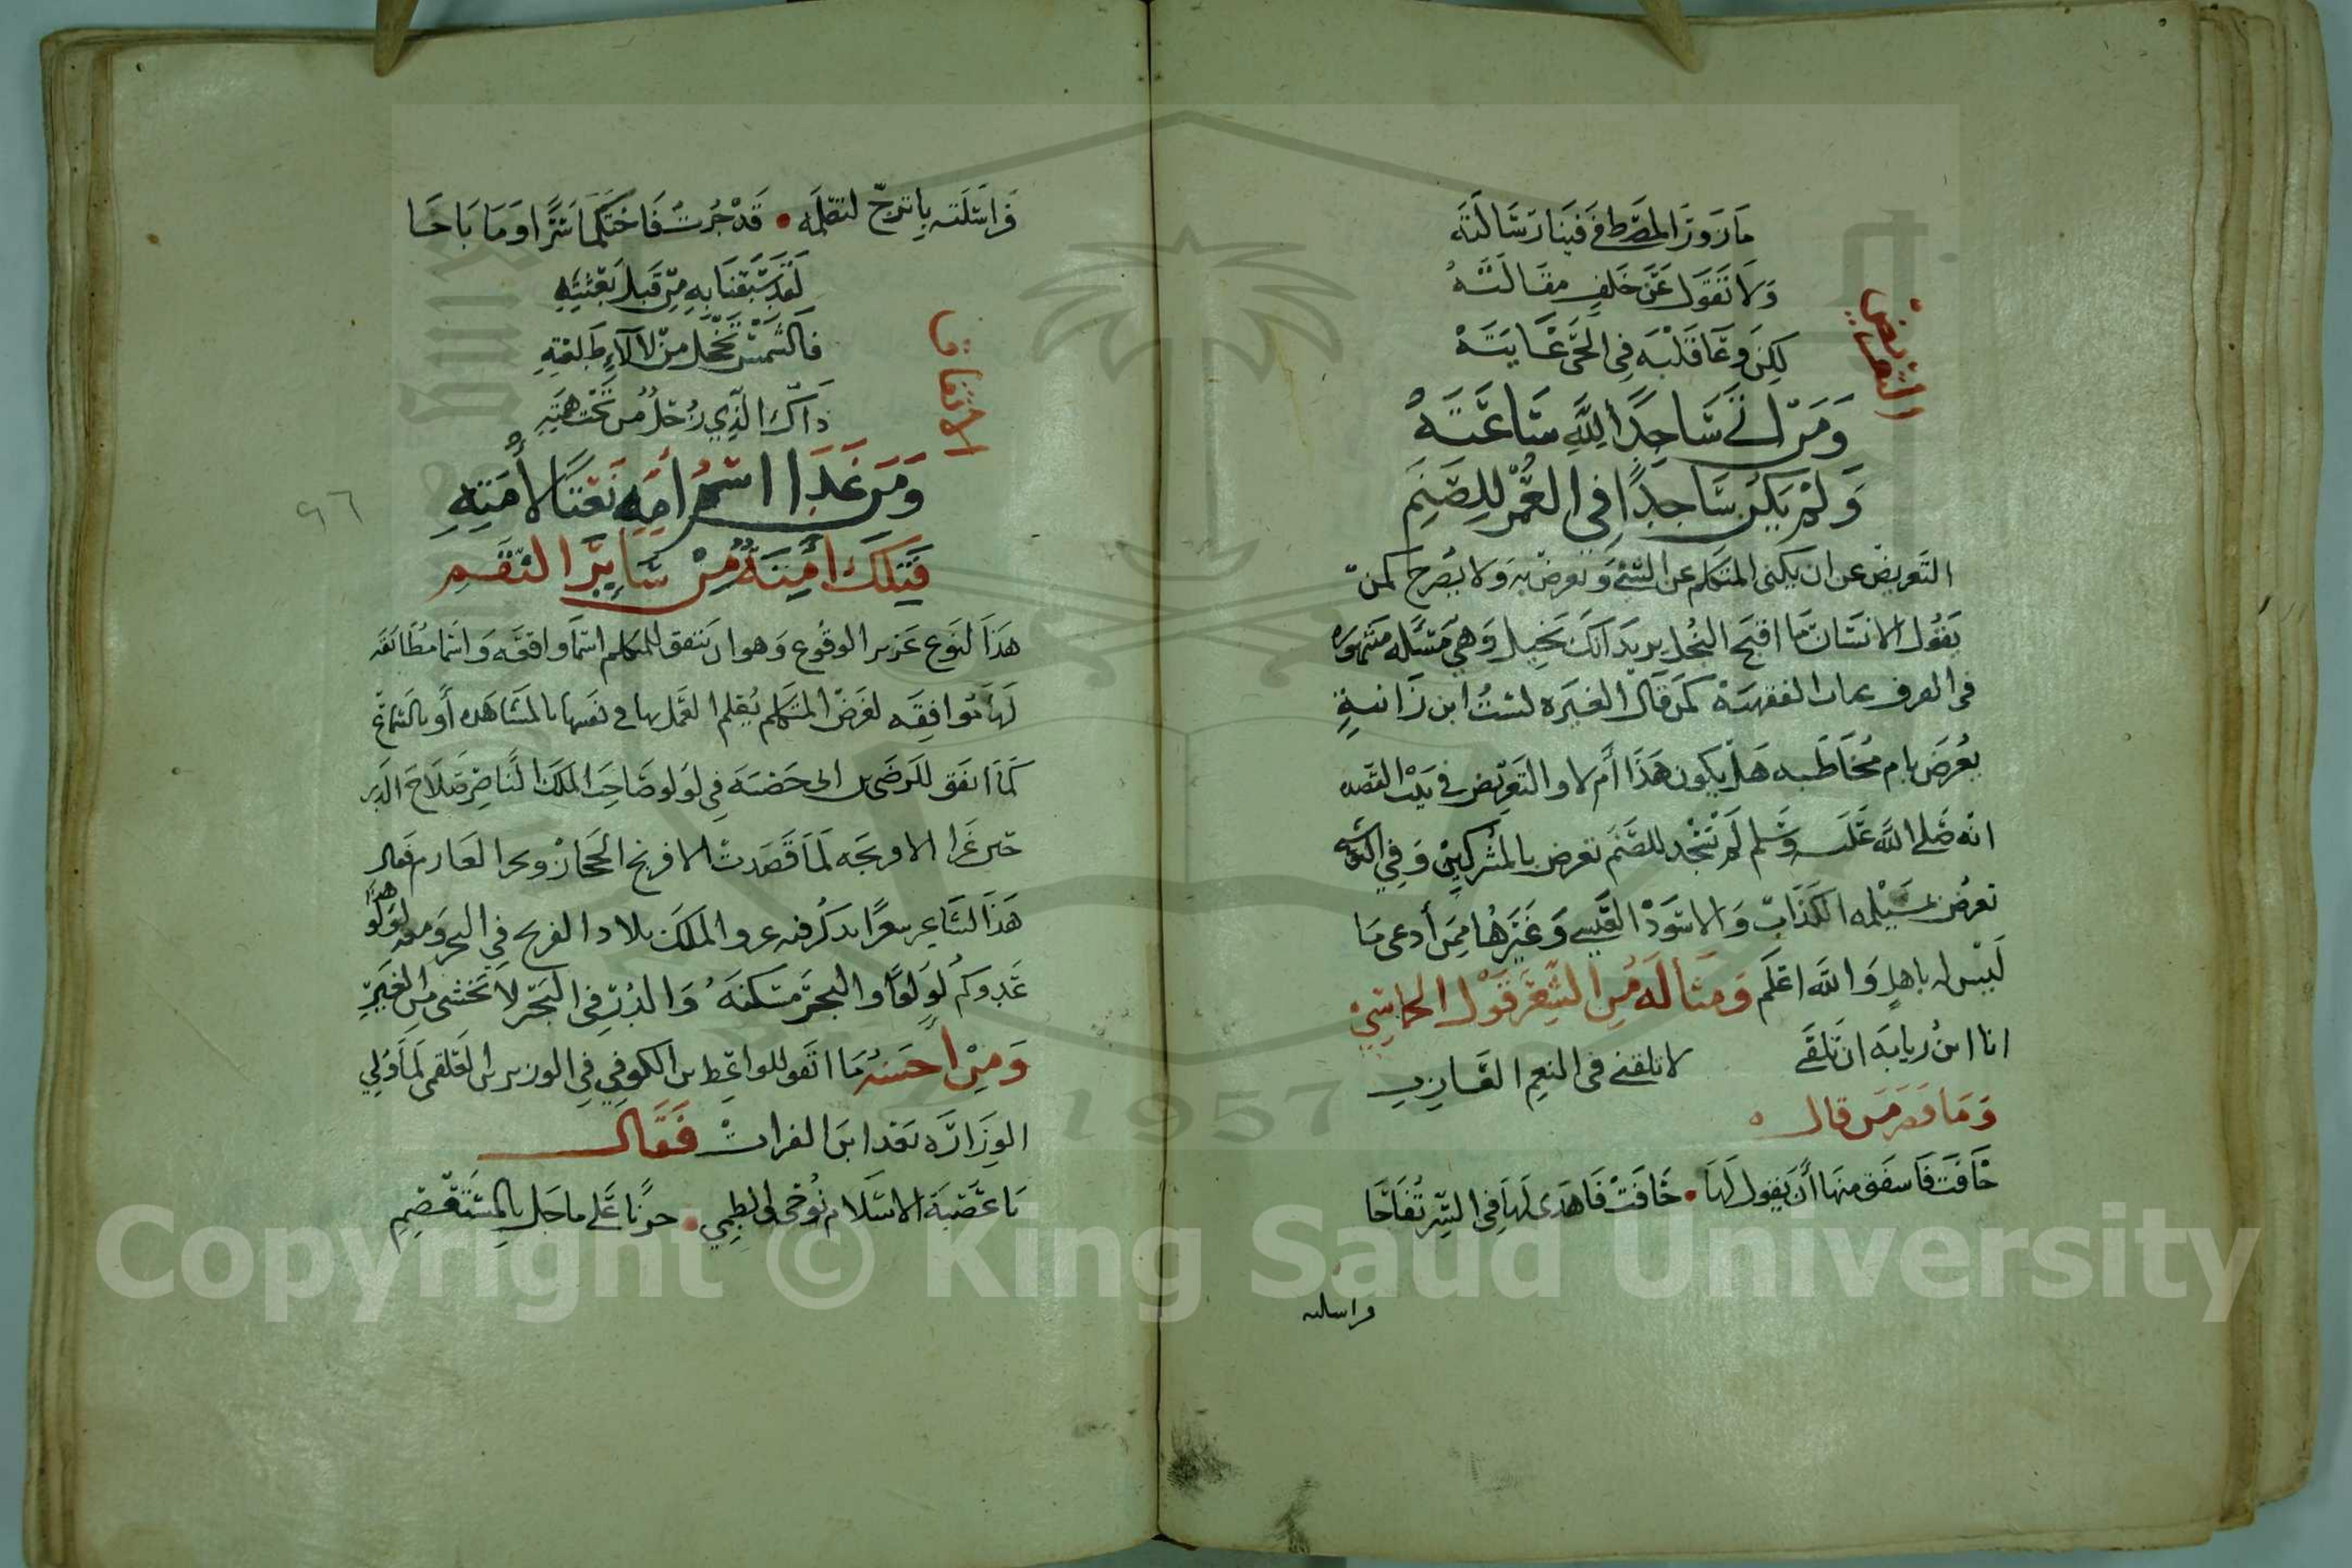 التعريض
ما زور المصطفى فينا رسالته
ولا تقول عن خلف مقالته
لكن وعا قلبه في الحق غايته
ومن اتى ساجدا لله ساعته
ولم يكن ساجدا في العمر للصنم
التعريض عن ان يكنى المتكلم عن الشئ وتعرض به ولا يصرح كمن
يقول الانسان ما اقبح البخل يريد انك بخيل وهي مسئله مشهوره
في العرف الفقهية كمن قال لغيره لست ابن زانية
يعرض بام مخاطبه هل يكون هذا أم لا والتعريض في بيت القصده
انه صلى الله عليه وسلم لم يسجد للصنم تعرض بالمشركين وفي
تعرض بمسيلمه الكذاب والاسود العنسي وغيرها ممن أدعى ما
ليس له باهل والله اعلم ومثاله من الشعر قول الحماسي
انا ابن زيابه ان تلقني لا تلقني في النعم العازب
وما قصر من قال
خافت فاسفق منها أن يقول لها • خافت فاهدى لها في السر تفاحا
فراسلته
فراسلته باترج لتقلمه • قد جرت فاحتكما سرا وما باحا
لقد سبقنا به من قبل بعثته
فالشمس تخجل من لآلاء طلعته
ذاك الذي زحل من تحت همته
الاتفاق
ومن غدا اسم امه نعتا لأمته
فتلك أمنة من سائر النقم
٩٦
هذا النوع عزيز الوقوع وهو ان يتفق للمتكلم اسما واقعه واسما مطابقه
لها توافقه لغرض المتكلم العمل بها في نفسها بالمشاهده أو بالسماع
كما اتفق للرضى بن ابى حصنه في لولو صاحب الملك الناصر صلاح الدين
حين غزا الافرنجه لما قصدت الافرنج الحجاز وبحر القلزم فقال
هذا الشاعر شعرا يذكر فيه غزو الملك بلاد الفرنج في البحر ومعه لولو هذا
عدوكم لولوا والبحر مسكنه والدر في البحر لا تخشى من الغير
ومن أحسنه ما اتفق للواعظ بن الكوفي في الوزير بن العلقمى لما ولي
الوزاره بعد ابن الفرات فقال
يا عصبة الاسلام نوحي والطمي • حزنا على ما حل بالمستعصم